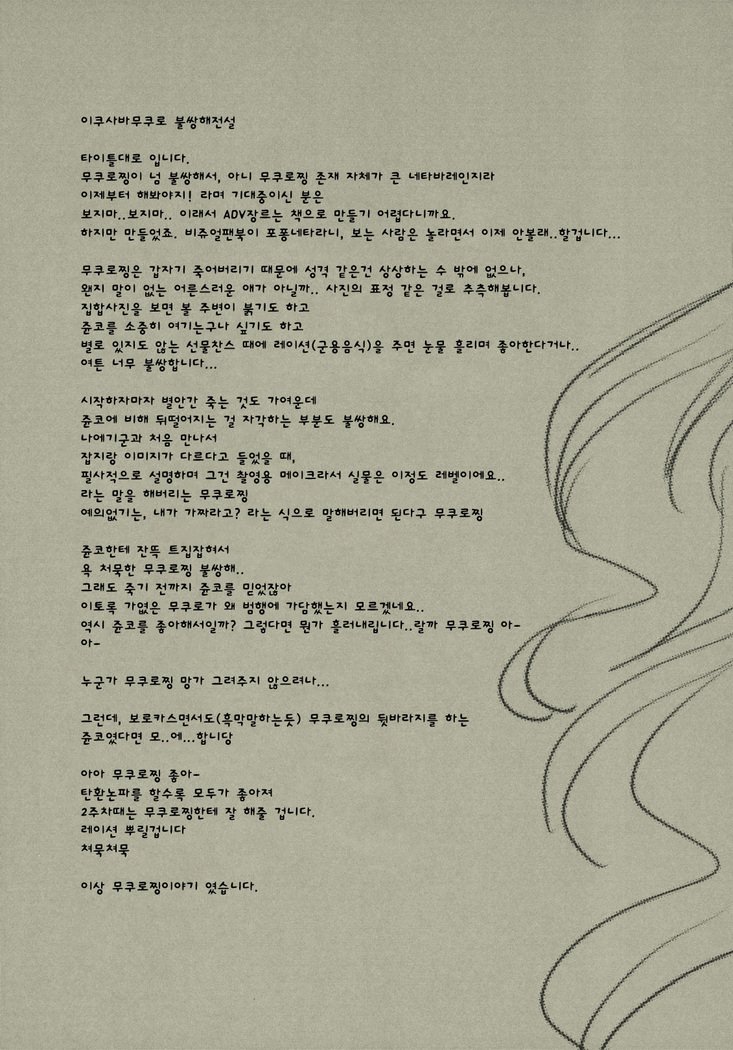 이쿠사바무쿠로 불쌍해전설
타이틀대로 입니다.
무쿠로찡이 넘 불쌍해서, 아니 무쿠로찡 존재 자체가 큰 네타바레인지라
이제부터 해봐야지! 라며 기대중이신 분은
보지마..보지마.. 이래서 ADV장르는 책으로 만들기 어렵다니까요.
하지만 만들었죠. 비쥬얼팬북이 포풍네타라니, 보는 사람은 놀라면서 이제 안볼래..할겁니다...
무쿠로찡은 갑자기 죽어버리기 때문에 성격 같은건 상상하는 수 밖에 없으나,
왠지 말이 없는 어른스러운 애가 아닐까.. 사진의 표정 같은 걸로 추측해봅니다.
집합사진을 보면 볼 주변이 붉기도 하고
쥰코를 소중히 여기는구나 싶기도 하고
별로 있지도 않는 선물찬스 때에 레이션(군용음식)을 주면 눈물 흘리며 좋아한다거나..
여튼 너무 불쌍합니다...
시작하자마자 별안간 죽는 것도 가여운데
쥰코에 비해 뒤떨어지는 걸 자각하는 부분도 불쌍해요.
나에기군과 처음 만나서
잡지랑 이미지가 다르다고 들었을 때,
필사적으로 설명하며 그건 촬영용 메이크라서 실물은 이정도 레벨이에요..
라는 말을 해버리는 무쿠로찡
예의없기는, 내가 가짜라고? 라는 식으로 말해버리면 된다구 무쿠로찡
쥰코한테 잔뜩 트집잡혀서
욕 처묵한 무쿠로찡 불쌍해..
그래도 죽기 전까지 쥰코를 믿었잖아
이토록 가엾은 무쿠로가 왜 범행에 가담했는지 모르겠네요..
역시 쥰코를 좋아해서일까? 그럼다면 뭔가 흘러내립니다..랄까 무쿠로찡 아-
아-
누군가 무쿠로찡 망가 그려주지 않으려나...
그런데, 보로카스면서도(흑막말하는듯) 무쿠로찡의 뒷바라지를 하는
쥰코였다면 모..에...합니당
아아 무쿠로찡 좋아-
탄환논파를 할수록 모두가 좋아져
2주차때는 무쿠로찡한테 잘 해줄 겁니다.
레이션 뿌릴겁니다
쳐묵쳐묵
이상 무쿠로찡이야기 였습니다.